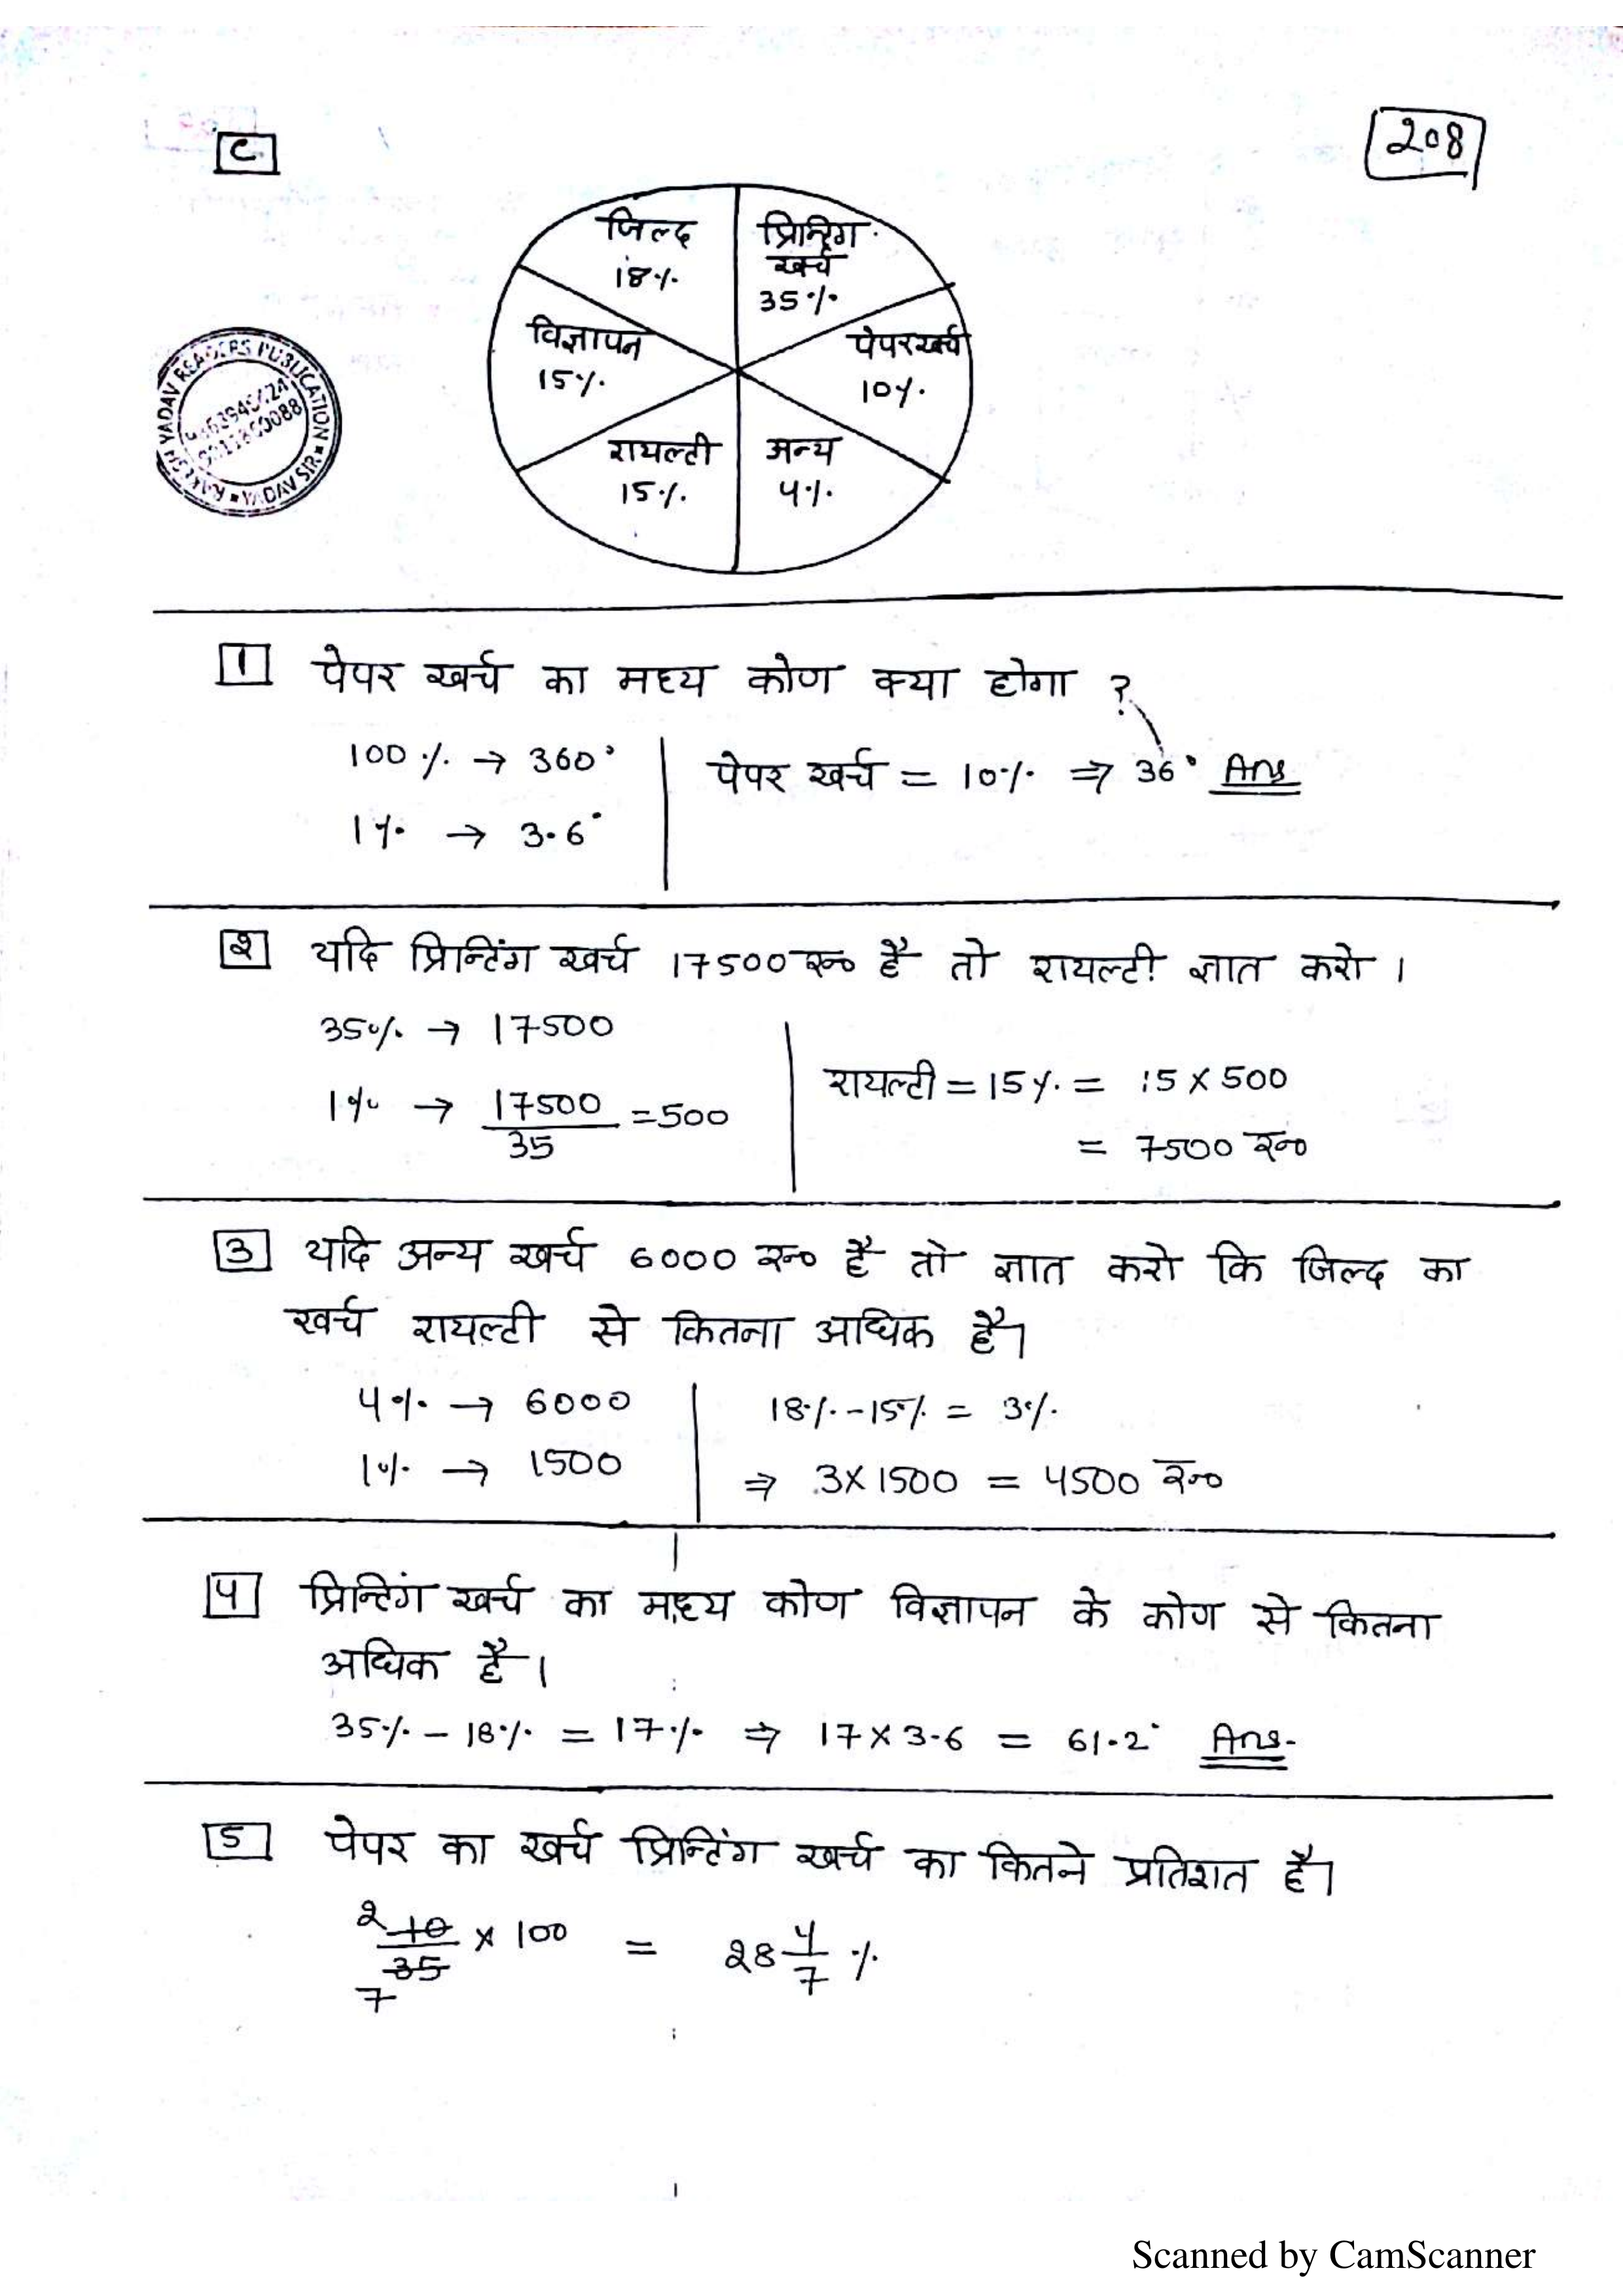 C.
208
जिल्द
18%
प्रिन्टिंग
खर्च
35%
विज्ञापन
15%
पेपरखर्च
10%
रायल्टी
15%
अन्य
4%
YADAV READERS PUBLICATION
RAKESH YADAV SIR
1 पेपर खर्च का मध्य कोण क्या होगा ?
100% → 360°
1% → 3.6°
पेपर खर्च = 10% ⇒ 36° Ans
2 यदि प्रिन्टिंग खर्च 17500 रु० है तो रायल्टी ज्ञात करो ।
35% → 17500
1% → 17500/35 = 500
रायल्टी = 15% = 15 × 500
= 7500 रु०
3 यदि अन्य खर्च 6000 रु० है तो ज्ञात करो कि जिल्द का
खर्च रायल्टी से कितना अधिक है।
4% → 6000
1% → 1500
18% - 15% = 3%
⇒ 3 × 1500 = 4500 रु०
4 प्रिन्टिंग खर्च का मध्य कोण विज्ञापन के कोण से कितना
अधिक है ।
35% - 18% = 17% ⇒ 17 × 3.6 = 61.2° Ans.
5 पेपर का खर्च प्रिन्टिंग खर्च का कितने प्रतिशत है।
2 10/35 7 × 100 = 28 4/7 %
Scanned by CamScanner